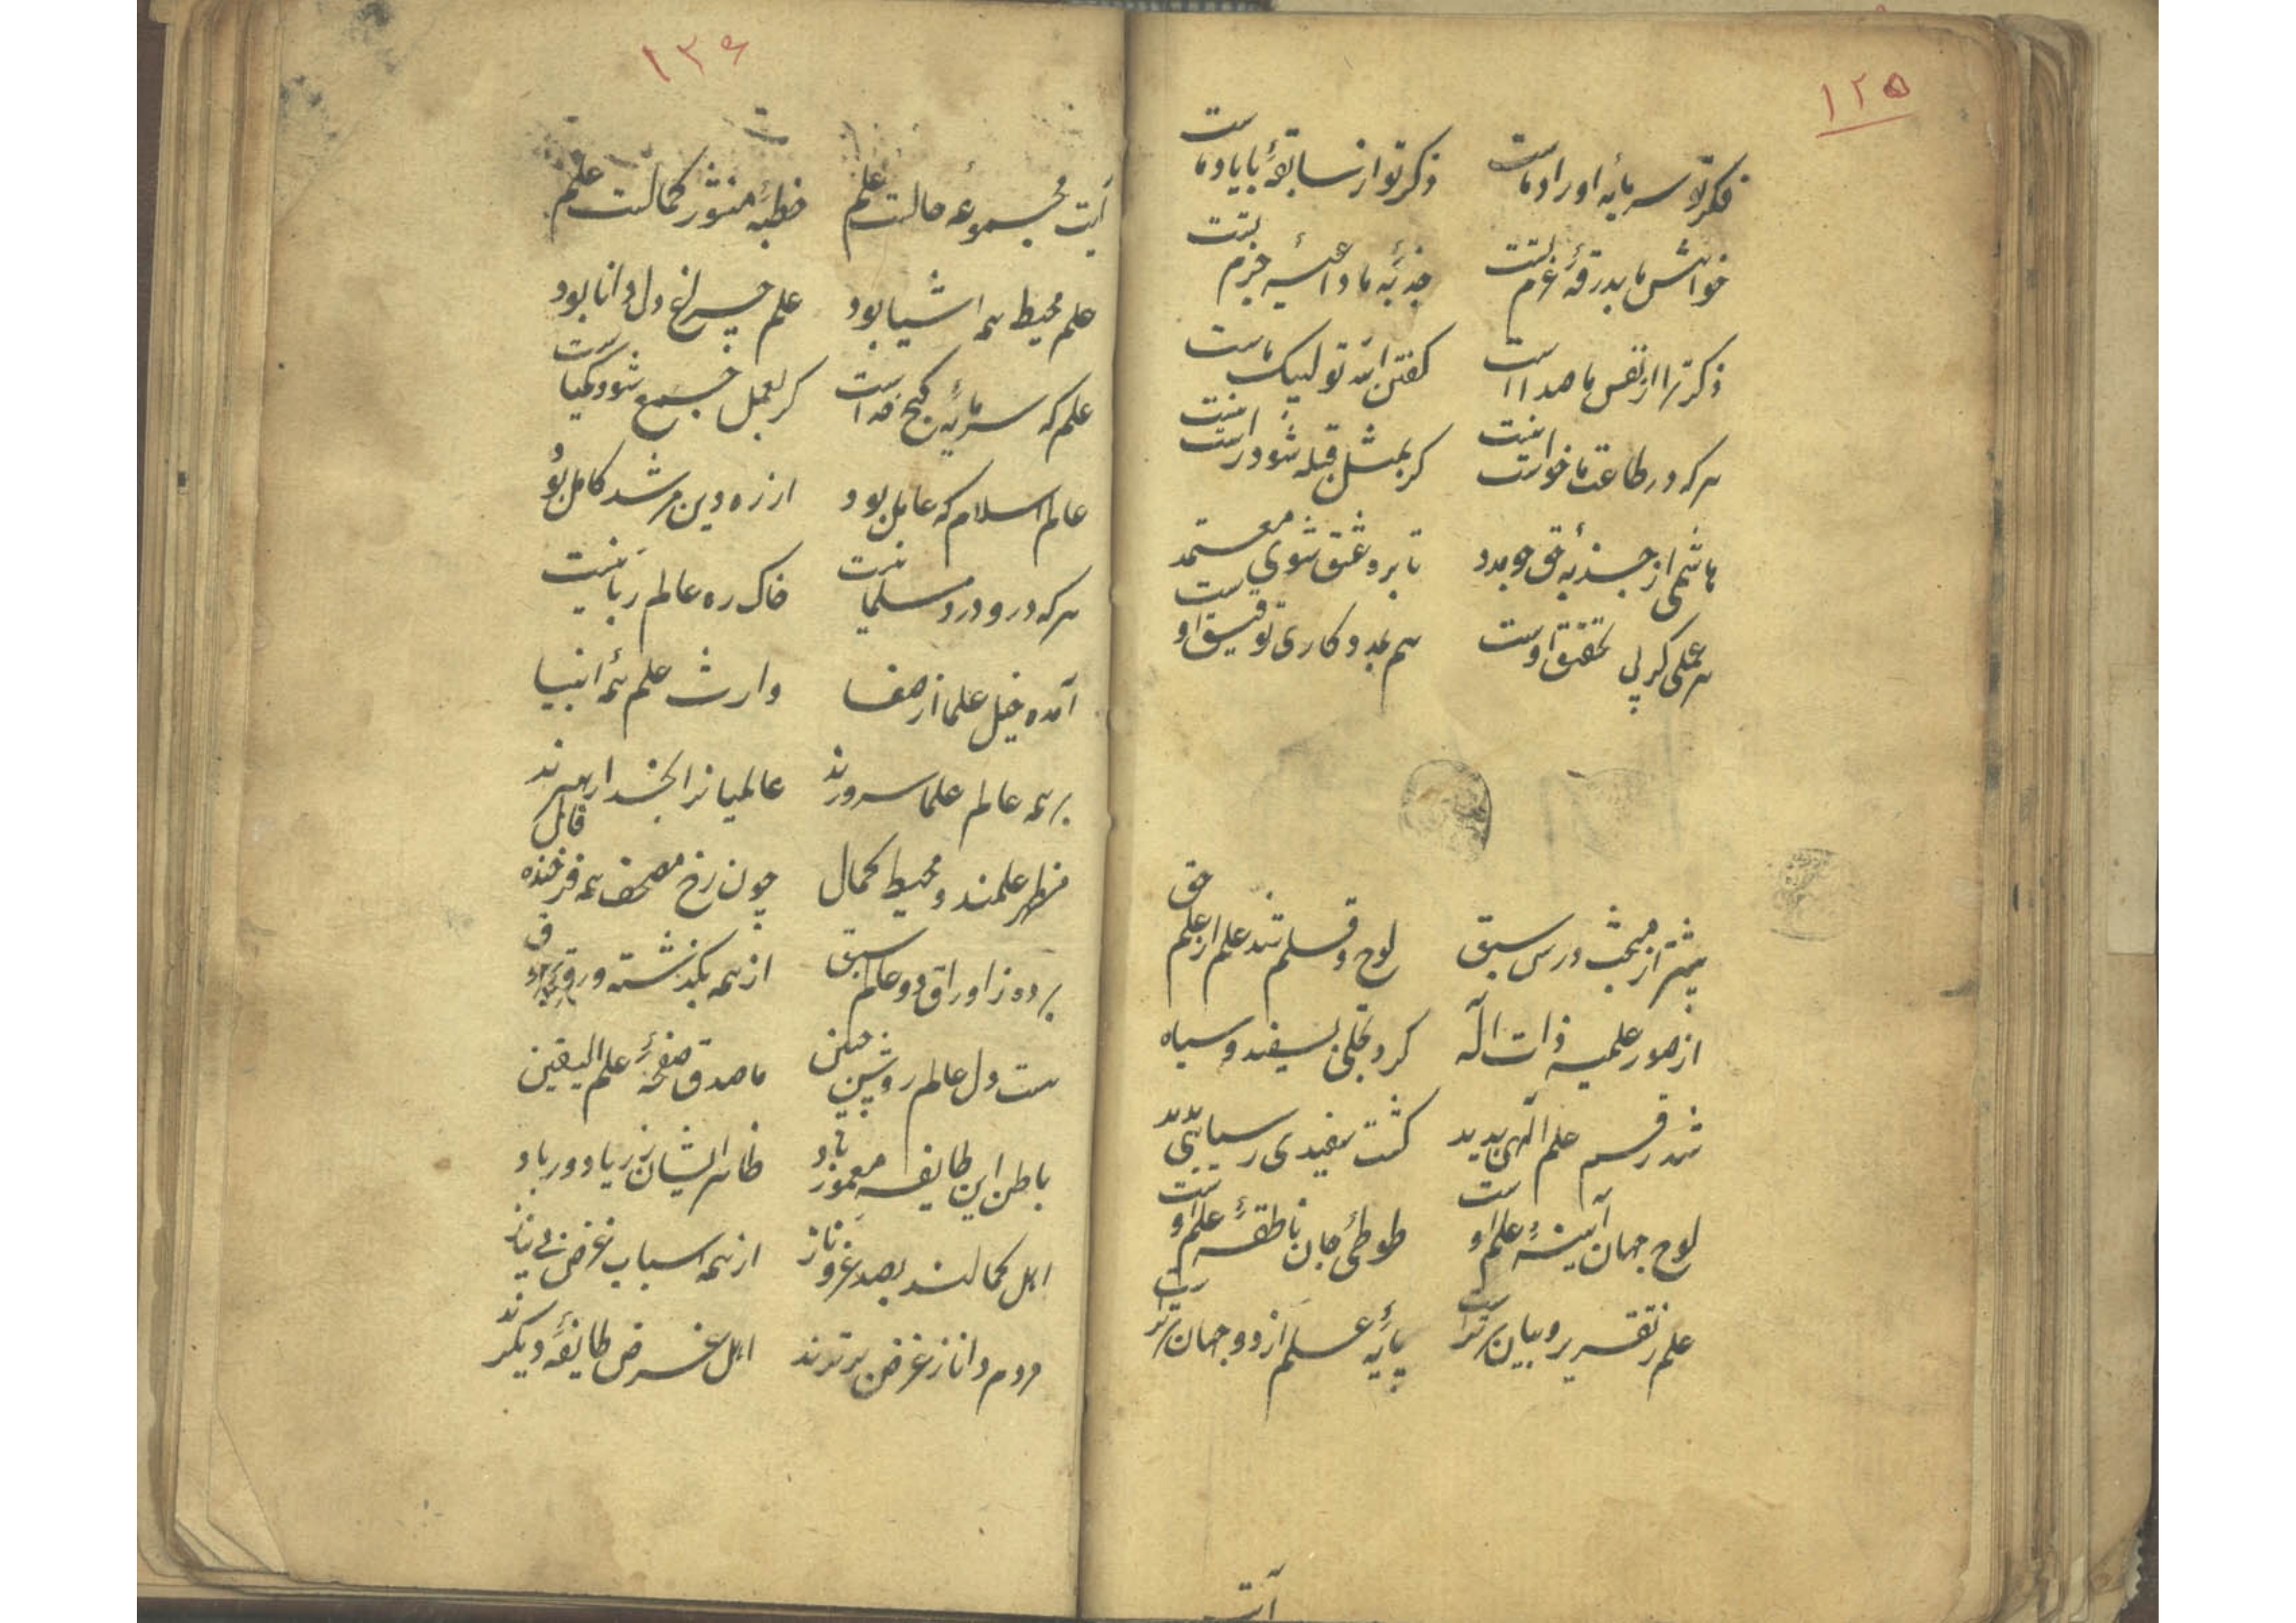 ۱۲۵
فکر تو سرمایه اوراد ماست ذکر تو از سابقهٔ با یاد ماست
خواهش ما بدرقهٔ عزم تست جذبهٔ ما داعیهٔ جزم تست
ذکر ترا از نفس ما صداست گفتن الله تو لبیک ماست
هر که در طاعت ما خواست کر بمثل قبله شود راست
هاشمی از جذبه حق جو مدد تا بره عشق شوی معتمد
هر عملی کز پی تحقیق اوست هم بمددکاری توفیق اوست
پیشتر از مبحث درس سبق لوح و قلم شد علم از علم حق
از صور علمیه ذات اله کرد تجلی بسفید و سیاه
شد رقم علم الهی پدید گشت سفیدی ز سیاهی پدید
لوح جهان آینهٔ علم اوست طوطی جان ناطقهٔ علم اوست
علم ز تقریر و بیان برترست پایهٔ علم از دو جهان برترست
آیت
۱۳۶
آیت مجموعه حالست علم خطبهٔ منشور کمالست علم
علم محیط همه اشیا بود علم چراغ دل دانا بود
علم که سرمایهٔ گنج است گر بعمل جمع شود کیمیاست
عالم اسلام که عامل بود از ره دین مرشد کامل بود
هر که درو درد مسلمانیست خاک ره عالم ربانیست
آمده خیل علما از صفا وارث علم همه انبیا
بر همه عالم علما سرورند عالمیانرا بخدا رهبرند
مظهر علمند و محیط کمال چون رخ مصحف همه فرخنده فال
برده ز اوراق دو عالم سبق از همه بگذشته ورق
هست دل عالم روشن جبین ماصدق صفحهٔ علم الیقین
باطن این طایفه معمور باد ظاهر ایشان ز ریا دور باد
اهل کمالند بصد عز و ناز از همه اسباب غرض بی نیاز
مردم دانا ز غرض برترند اهل غرض طایفهٔ دیگرند